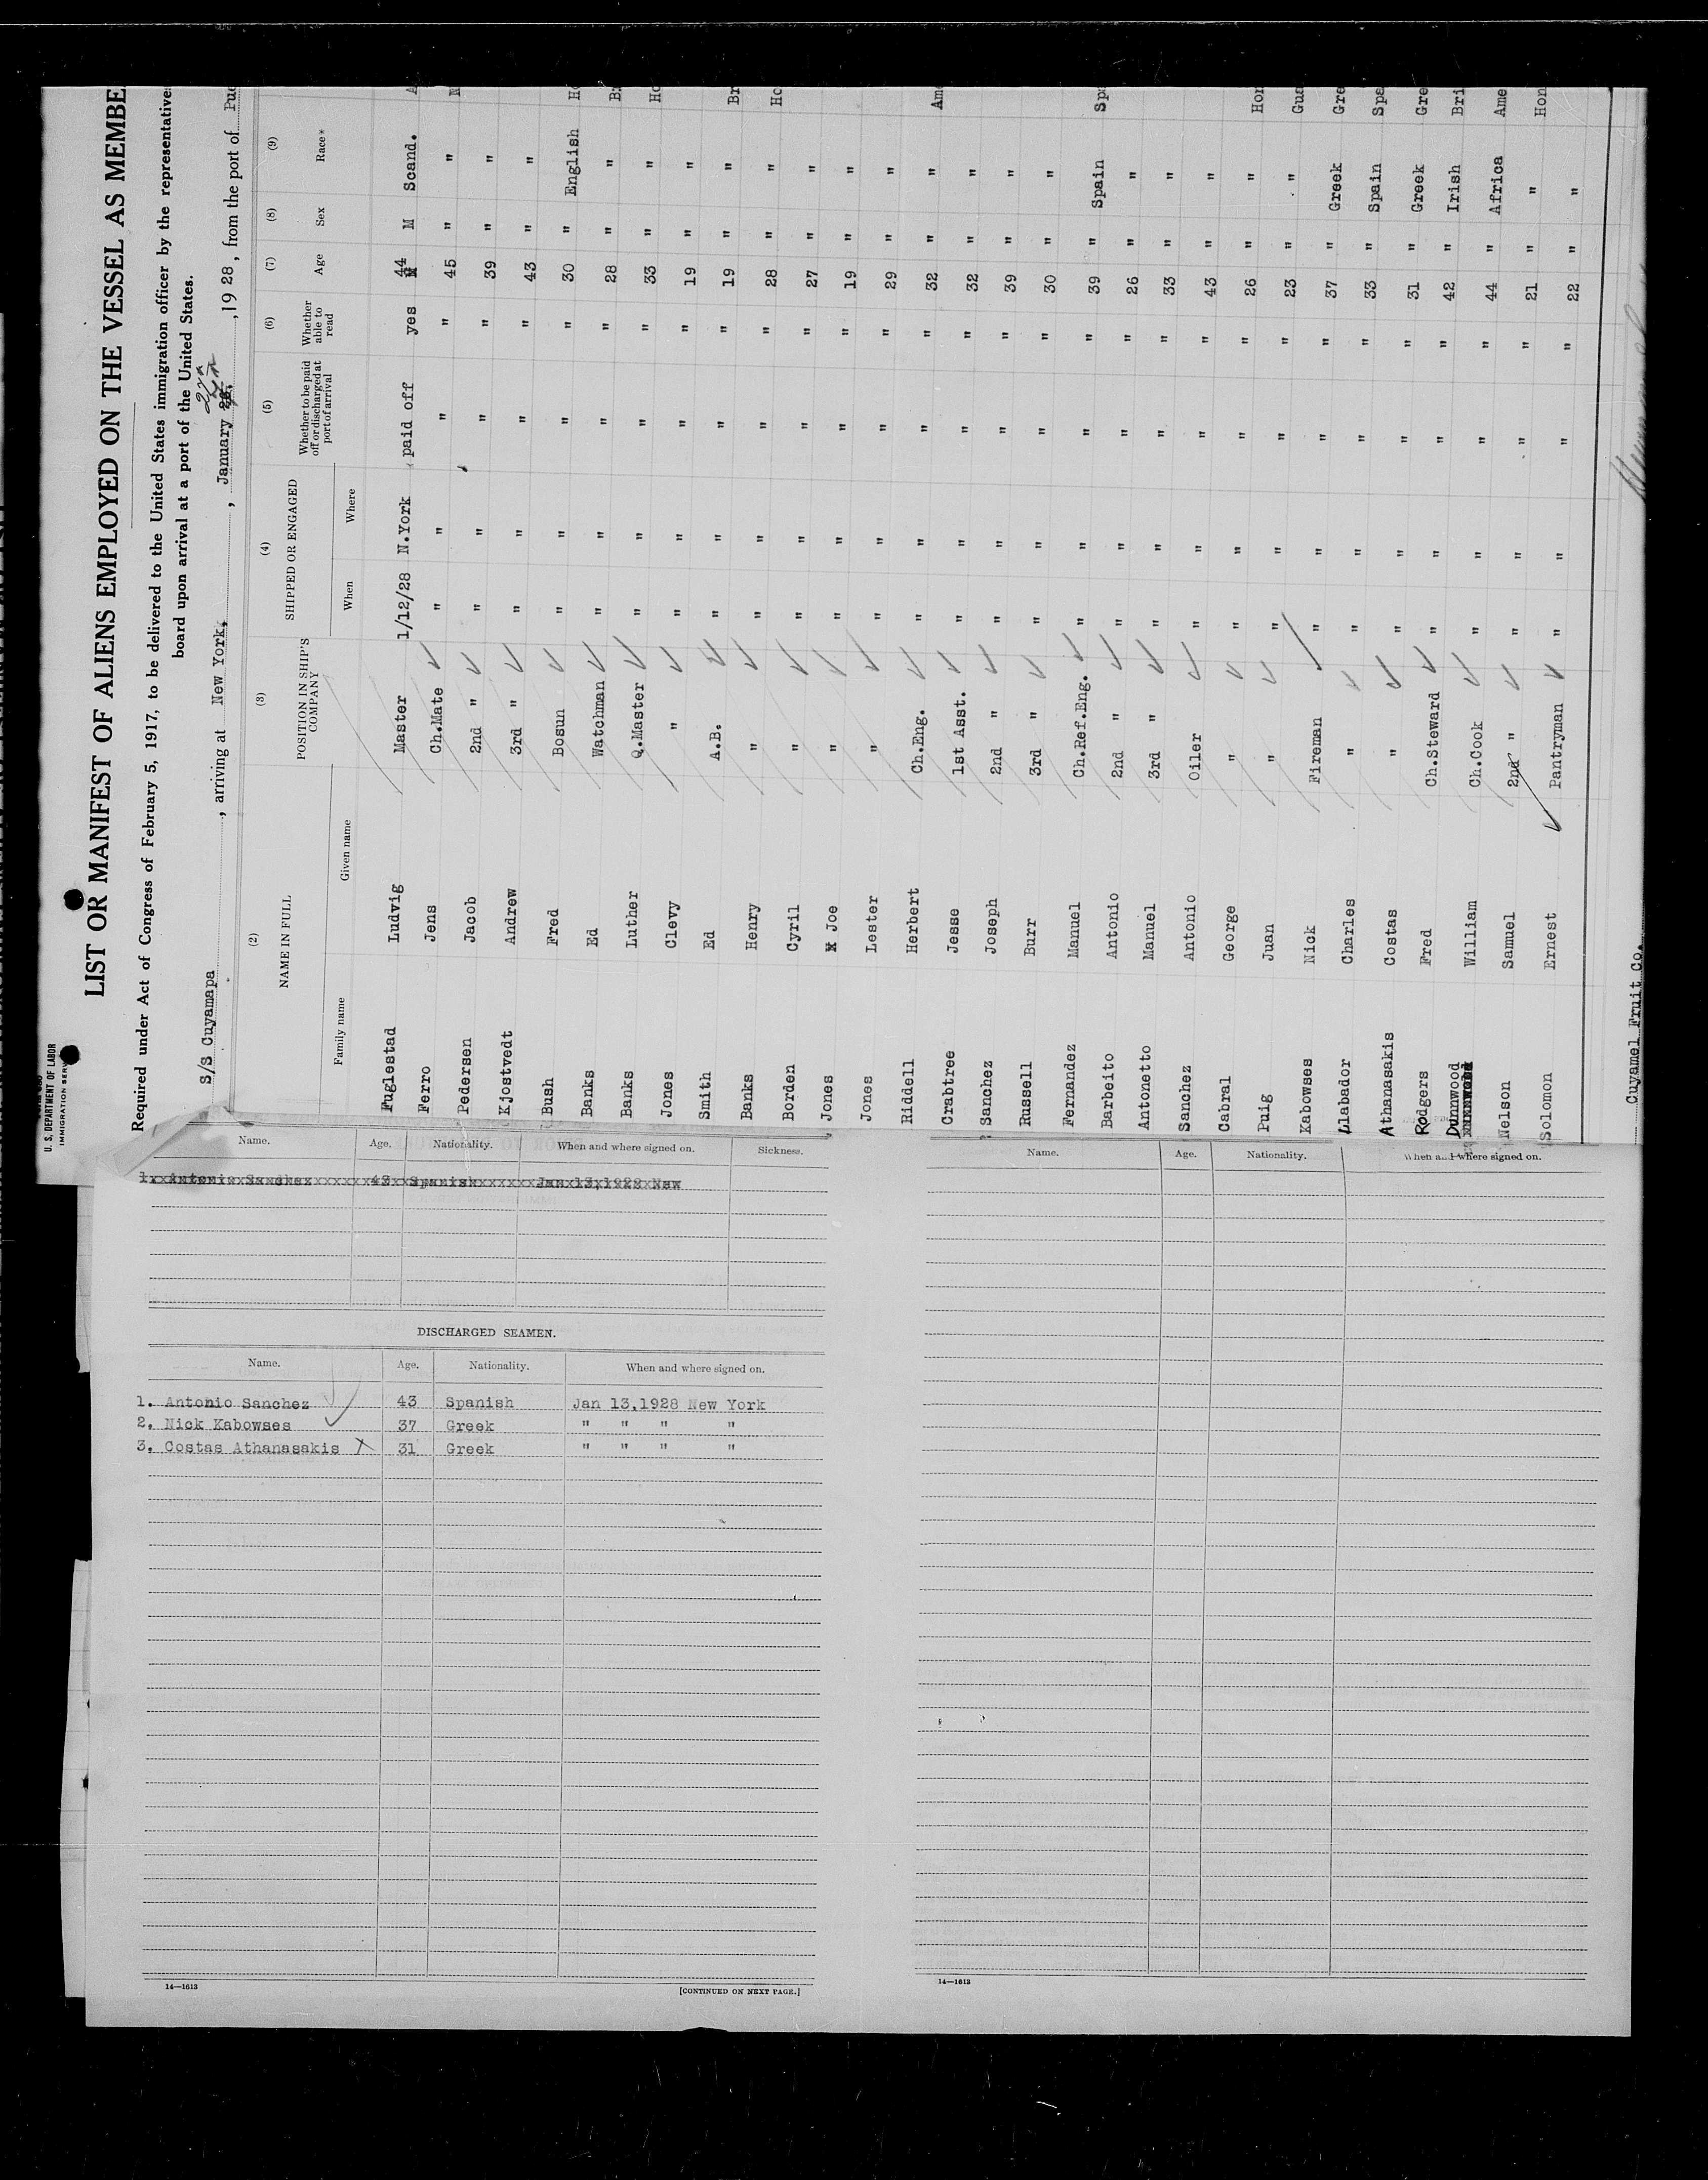 U. S. DEPARTMENT OF LABOR
IMMIGRATION SERV
LIST OR MANIFEST OF ALIENS EMPLOYED ON THE VESSEL AS MEMBE
Required under Act of Congress of February 5, 1917, to be delivered to the United States immigration officer by the representative
board upon arrival at a port of the United States.
S/S Cuyamapa , arriving at New York. , January , 1928 , from the port of Pue
(2) (3) (4) (5) (6) (7) (8) (9)
NAME IN FULL POSITION IN SHIP'S COMPANY SHIPPED OR ENGAGED Whether to be paid off or discharged at port of arrival Whether able to read Age Sex Race*
Family name Given name When Where
Fuglestad Ludvig Master 1/12/28 N.York paid off yes 44 M Scand. A
Ferro Jens Ch.Mate " " " " 45 " " N
Pedersen Jacob 2nd " " " " " 39 " "
Kjostvedt Andrew 3rd " " " " " 43 " "
Bush Fred Bosun " " " " 30 " English Ho
Banks Ed Watchman " " " " 28 " " Br
Banks Luther Q.Master " " " " 33 " " Ho
Jones Clevy " " " " " 19 " "
Smith Ed A.B. " " " " 19 " " Br
Banks Henry " " " " " 28 " " Ho
Borden Cyril " " " " " 27 " "
Jones Joe " " " " " 19 " "
Jones Lester " " " " " 29 " "
Riddell Herbert Ch.Eng. " " " " 32 " " Ame
Crabtree Jesse 1st Asst. " " " " 32 " "
Sanchez Joseph 2nd " " " " " 39 " "
Russell Burr 3rd " " " " " 30 " "
Fernandez Manuel Ch.Ref.Eng. " " " " 39 " Spain Spa
Barbeito Antonio 2nd " " " " " 26 " "
Antonetto Manuel 3rd " " " " " 33 " "
Sanchez Antonio Oiler " " " " 43 " "
Cabral George " " " " " 26 " " Hon
Puig Juan " " " " " 23 " " Gua
Kabowses Nick Fireman " " " " 37 " Greek Gre
Llabador Charles " " " " " 33 " Spain Spa
Athanasakis Costas " " " " " 31 " Greek Gre
Rodgers Fred Ch.Steward " " " " 42 " Irish Bri
Dunnwood William Ch.Cook " " " " 44 " Africa Ame
Nelson Samuel 2nd " " " " " 21 " " Hon
Solomon Ernest Pantryman " " " " 22 " "
Cuyamel Fruit Co.
Name. Age. Nationality. When and where signed on. Sickness.
1. Antonio Sanchez 43 Spanish Jan 13,1928 New
DISCHARGED SEAMEN.
Name. Age. Nationality. When and where signed on.
1. Antonio Sanchez 43 Spanish Jan 13,1928 New York
2. Nick Kabowses 37 Greek " " " "
3. Costas Athanasakis 31 Greek " " " "
14—1613
[CONTINUED ON NEXT PAGE.]
Name. Age. Nationality. When and where signed on.
14—1613